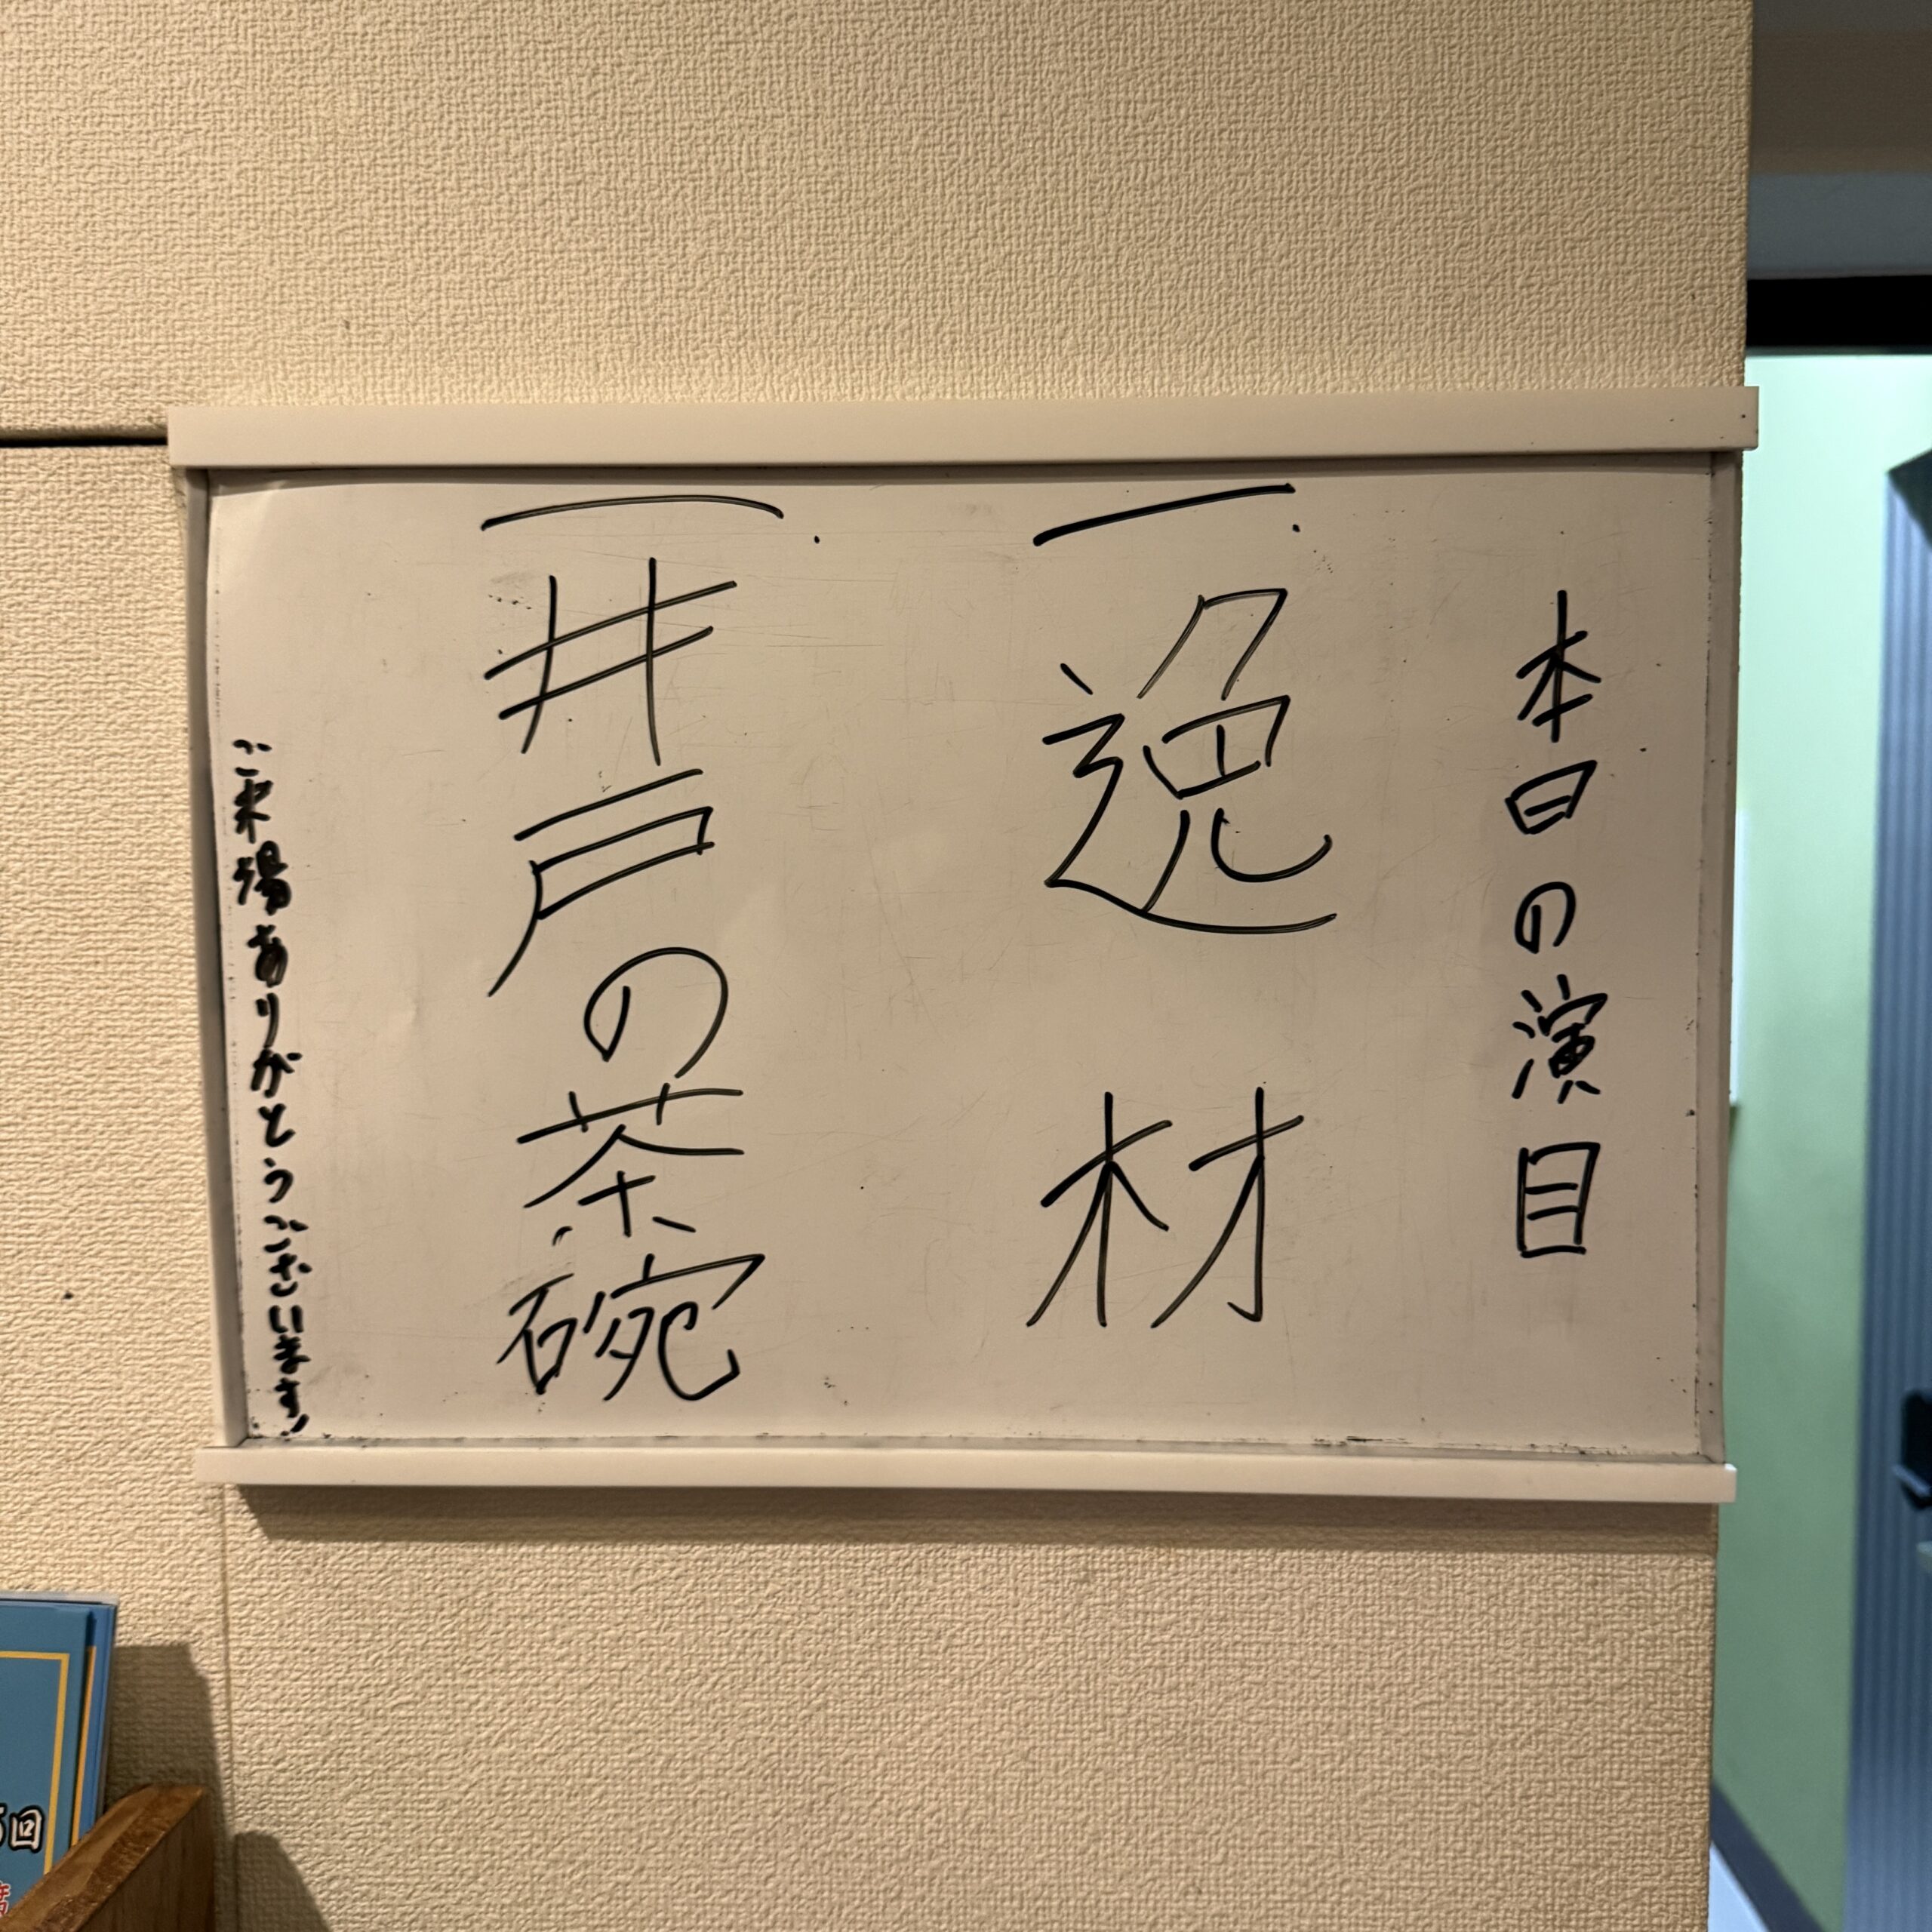 本日の演目
一. 逸材
一. 井戸の茶碗
ご来場ありがとうございます!
回
席